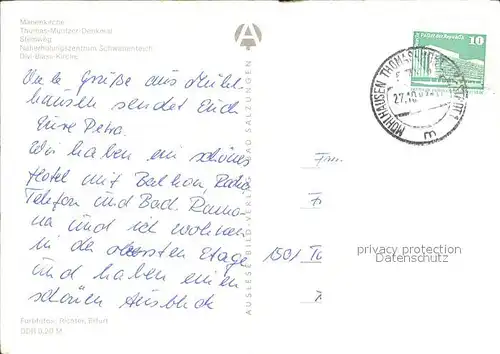 Marienkirche
Thomas-Müntzer-Denkmal
Steinweg
Naherholungszentrum Schwanenteich
Divi-Blasii-Kirche
Viele Grüße aus Mühl-
hausen sendet Euch
Eure Petra.
Wir haben ein schönes
Hotel mit Balkon, Radio
Telefon und Bad. Ramo-
na und ich wohnen
in der obersten Etage
und haben einen
schönen Ausblick
Farbfotos: Richter, Erfurt
AUSLESE-BILD-VERLAG BAD SALZUNGEN
A
10
MÜHLHAUSEN THOMAS-MÜNTZER-STADT 1
27.10
m
Fam.
1501
privacy protection
Datenschutz